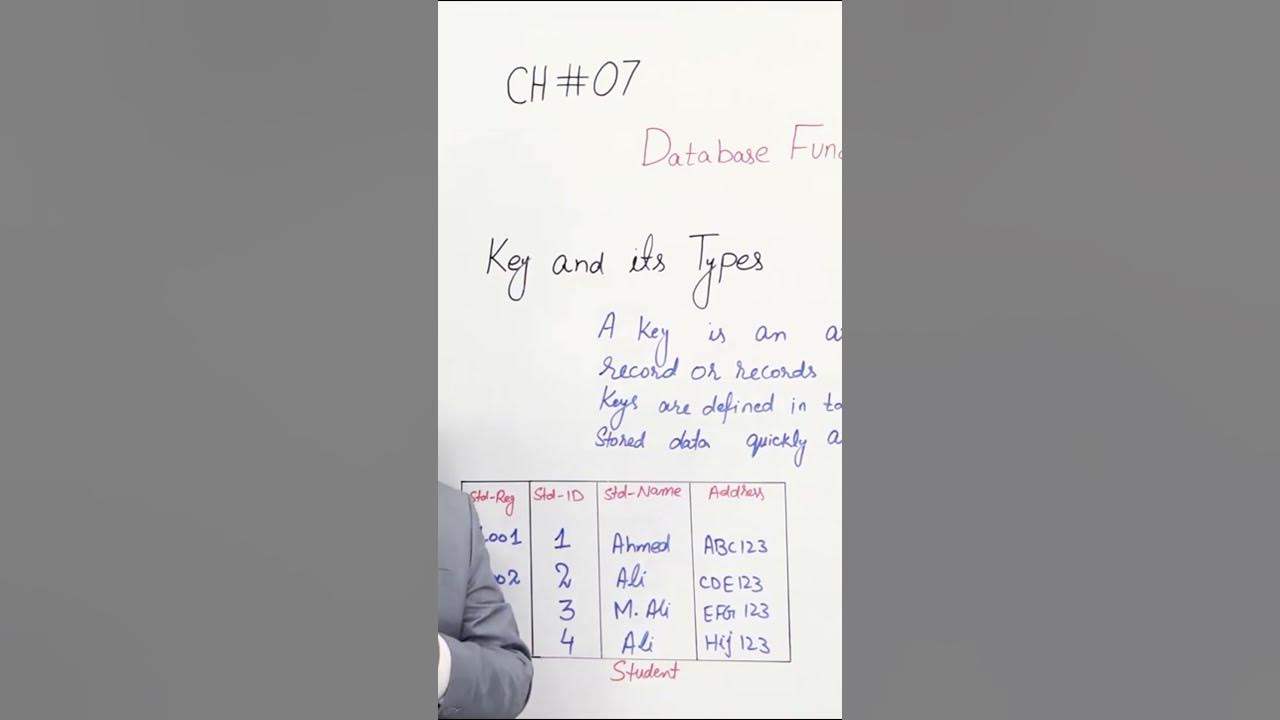 CH#07
Database
Key and its Types
A key is an
record or records
Keys are defined in
Stored data quickly
Std-Reg Std-ID Std-Name Address
1 Ahmed ABC123
2 Ali CDE123
3 M. Ali EFG 123
4 Ali Hij 123
Student